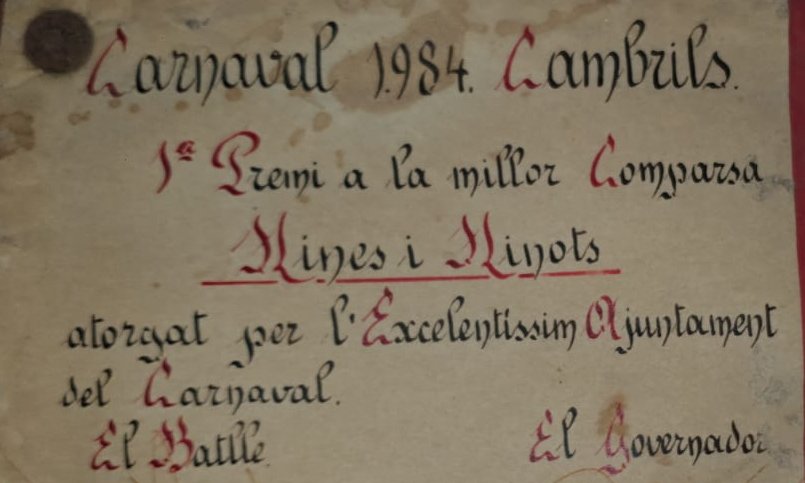 Carnaval 1.984. Cambrils.
1ª Premi a la millor Comparsa
Nines i Ninots
atorgat per l'Excelentíssim Ajuntament
del Carnaval.
El Batlle. El Governador